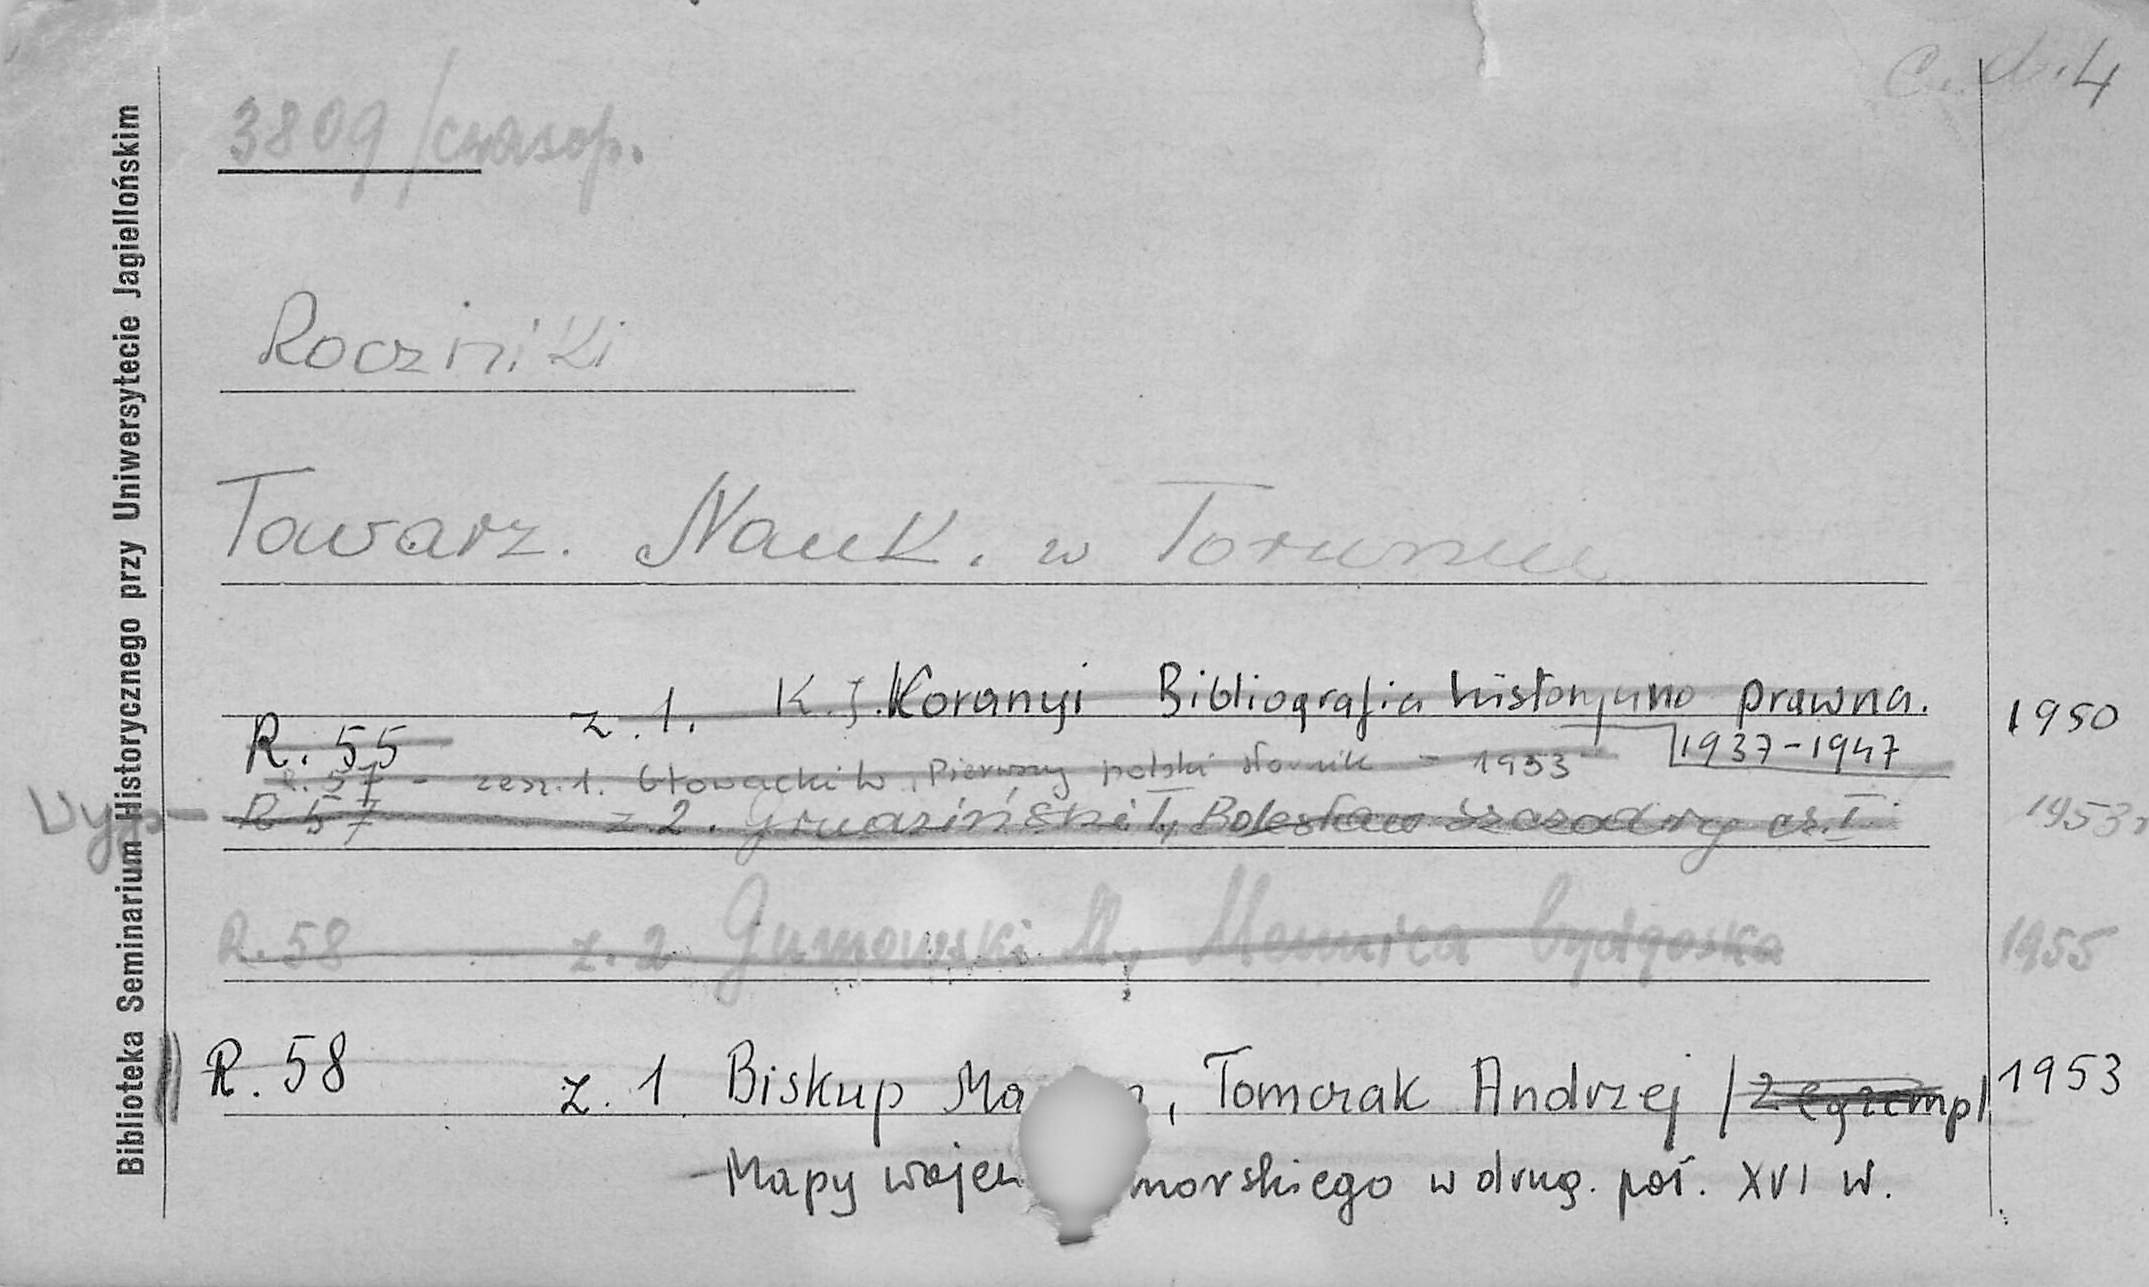 C. d. 4
3809/czasop.
Roczniki
Towarz. Nauk. w Toruniu
R. 55 z. 1. K. J. Koranyi Bibliografia historyczno prawna. 1950
1937-1947
R. 57 - zesz. 1. Głowacki W., Pierwszy polski słownik - 1953
Wyp. R 57 z 2. Grudziński T, Bolesław Szczodry cz. I. 1953 r
R. 58 z. 2 Gumowski M, Mennica bydgoska 1955
R. 58 z. 1 Biskup Ma n, Tomczak Andrzej /2 egzempl. 1953
Mapy wojew morskiego w drug. poł. XVI w.
Biblioteka Seminarium Historycznego przy Uniwersytecie Jagiellońskim